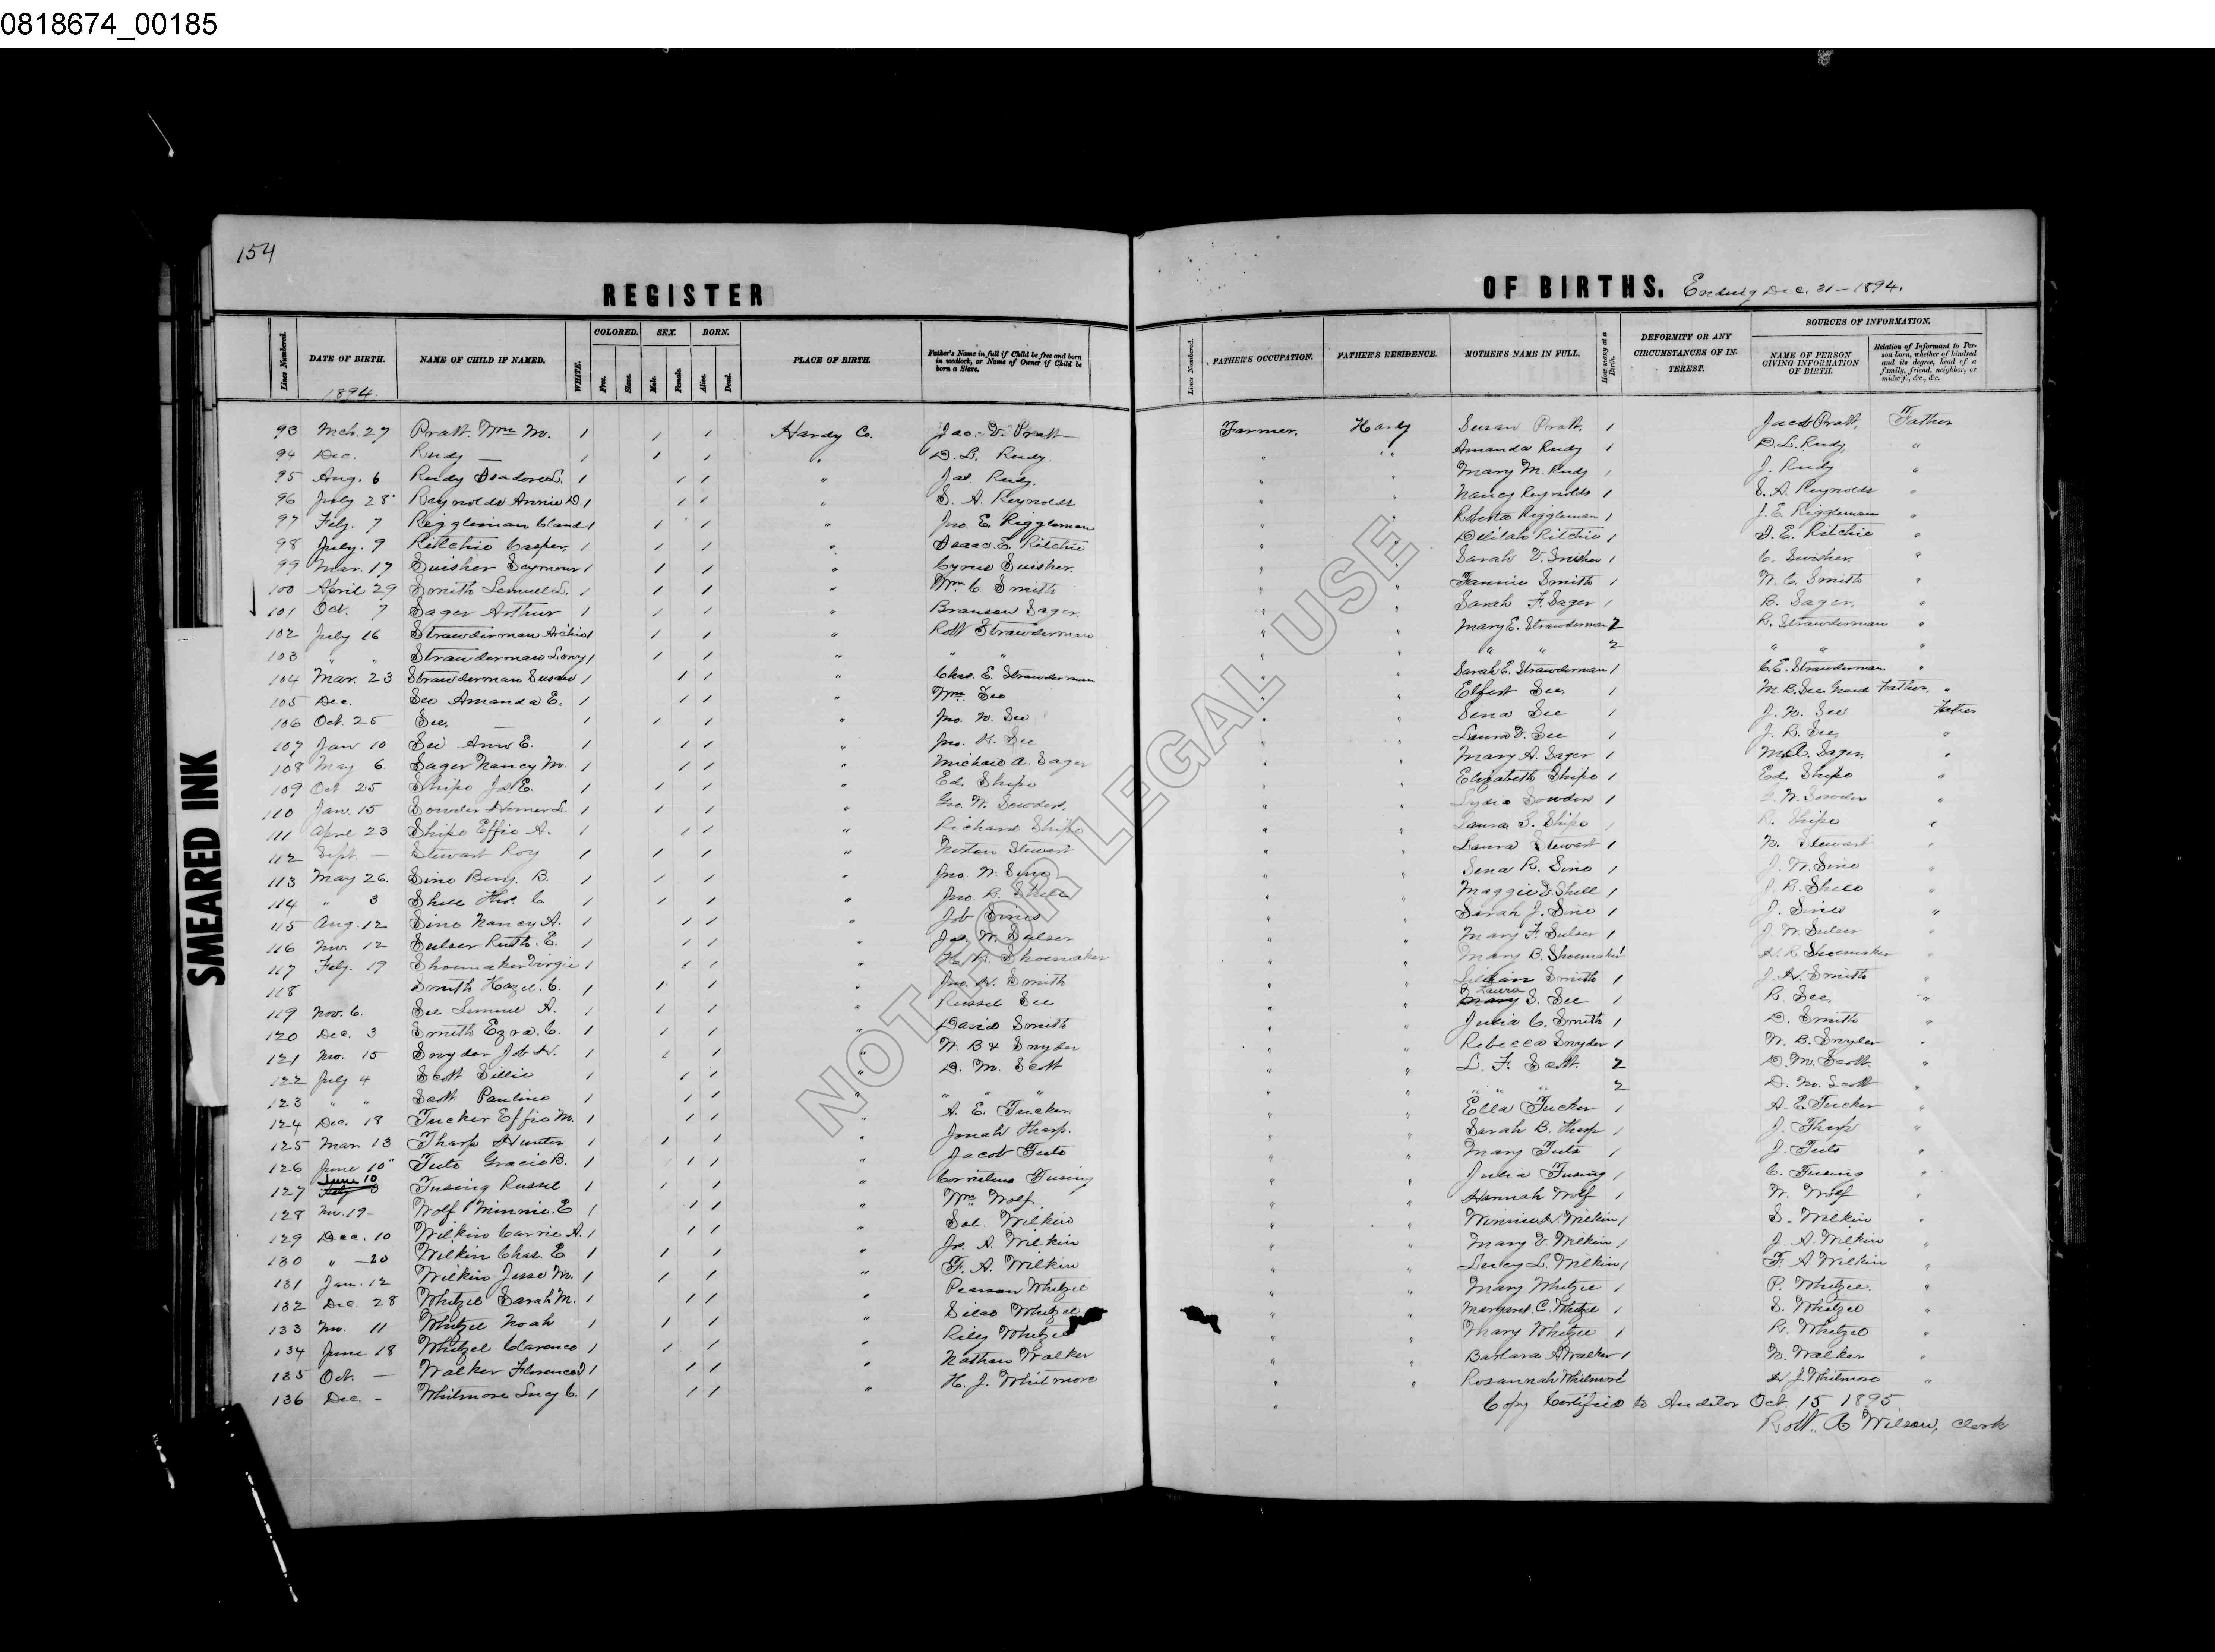 0818674_00185
154
REGISTER
OF BIRTHS. Ending Dec. 31-1894.
SMEARED INK
NOT FOR LEGAL USE
Lines Numbered. DATE OF BIRTH. NAME OF CHILD IF NAMED. WHITE. COLORED. Free. Slave. SEX. Male. Female. BORN. Alive. Dead. PLACE OF BIRTH. Father's Name in full if Child be free and born in wedlock, or Name of Owner if Child be born a Slave.
Lines Numbered. FATHER'S OCCUPATION. FATHER'S RESIDENCE. MOTHER'S NAME IN FULL. How many at a Birth. DEFORMITY OR ANY CIRCUMSTANCES OF INTEREST. SOURCES OF INFORMATION. NAME OF PERSON GIVING INFORMATION OF BIRTH. Relation of Informant to Person born, whether of kindred and its degree, head of a family, friend, neighbor, or midwife, &c., &c.
1894.
93 Mch. 27 Pratt. Wm M. 1 1 1 Hardy Co. Jac. V. Pratt Farmer. Hardy Susan Pratt. 1 Jacob Pratt. Father
94 Dec. Rudy — 1 1 1 " D. L. Rudy. " " Amanda Rudy 1 D. L. Rudy "
95 Aug. 6 Rudy Isadore L. 1 1 1 " Jas Rudy. " " Mary M. Rudy 1 J. Rudy "
96 July 28 Reynolds Annie D 1 1 1 " S. A. Reynolds " " Nancy Reynolds 1 S. A. Reynolds "
97 Feby. 7 Riggleman Claud 1 1 1 " Jno. E. Riggleman " " Roberta Riggleman 1 J. E. Riggleman "
98 July. 9 Ritchie Casper. 1 1 1 " Isaac E. Ritchie " " Delilah Ritchie 1 I. E. Ritchie "
99 Mar. 17 Swisher Seymour 1 1 1 " Cyrus Swisher. " " Sarah V. Swisher 1 C. Swisher. "
100 April 29 Smith Lemuel L. 1 1 1 " Wm. C. Smith " " Fannie Smith 1 W. C. Smith "
101 Oct. 7 Sager Arthur 1 1 1 " Branson Sager. " " Sarah F. Sager 1 B. Sager. "
102 July 16 Strawderman Archie 1 1 1 " Robt Strawderman " " Mary E. Strawderman 2 R. Strawderman "
103 " " Strawderman Lony 1 1 1 " " " " " " " 2 " " "
104 Mar. 23 Strawderman Susan 1 1 1 " Chas. E. Strawderman " " Sarah E. Strawderman 1 C. E. Strawderman "
105 Dec. See Amanda E. 1 1 1 " Wm See " " See 1 M. B. See Grand Father. "
106 Oct. 25 See. 1 1 1 " Jno. W. See " " Sena See 1 J. W. See Father
107 Jan 10 See Ann E. 1 1 1 " Jno. See " " Laura V. See 1 See "
108 May 6. Sager Nancy M. 1 1 1 " Michael A. Sager " " Mary A. Sager 1 M. A. Sager. "
109 Oct 25 Shipe Js E. 1 1 1 " Ed. Shipe " " Elizabeth Shipe 1 Ed. Shipe "
110 Jan. 15 Sowder Homer L. 1 1 1 " Geo. W. Sowders. " " Lydia Sowders 1 G. W. Sowder "
111 April 23 Shipe Effie A. 1 1 1 " Richard Shipe " " Laura S. Shipe 1 R. Shipe "
112 Sept — Stewart Roy 1 1 1 " Norton Stewart " " Laura Stewart 1 N. Stewart "
113 May 26. Sine Benj. B. 1 1 1 " Jno. W. Sine " " Sena R. Sine 1 J. W. Sine "
114 " 3 Shell Thos. C 1 1 1 " Jno. B. Shell " " Maggie Shell 1 J. B. Shell "
115 Aug. 12 Sine Nancy A. 1 1 1 " Job Sines " " Sarah J. Sine 1 J. Sines "
116 Nov. 12 Sulser Ruth. E. 1 1 1 " Jas. W. Sulser " " Mary F. Sulser 1 J. W. Sulser "
117 Feby. 19 Shoemaker Virgie 1 1 1 " H. R. Shoemaker " " Mary B. Shoemaker 1 H. R. Shoemaker "
118 Smith Hazel. C. 1 1 1 " Jno. H. Smith " " Lillian Smith 1 J. H. Smith "
119 Nov. 6. See Lemuel A. 1 1 1 " Russel See " " Laura S. See 1 R. See. "
120 Dec. 3 Smith Ezra. C. 1 1 1 " David Smith " " Julia C. Smith 1 D. Smith "
121 Nov. 15 Snyder Job H. 1 1 1 " W. B. Snyder " " Rebecca Snyder 1 W. B. Snyder "
122 July 4 Scott Lillie 1 1 1 " D. M. Scott " " L. F. Scott. 2 D. M. Scott. "
123 " " Scott Pauline 1 1 1 " " " " " " " " " 2 D. M. Scott "
124 Dec. 18 Tucker Effie M. 1 1 1 " A. E. Tucker. " " Ella Tucker 1 A. E Tucker "
125 Mar. 13 Tharp Hunter 1 1 1 " Jonah Tharp. " " Sarah B. Tharp 1 J. Tharp "
126 June 10 Teets Gracie B. 1 1 1 " Jacob Teets " " Mary Teets 1 J. Teets "
127 June 10 Tusing Russel 1 1 1 " Cornelius Tusing " " Julia Tusing 1 C. Tusing "
128 Nov. 19- Wolf Minnie. E 1 1 1 " Wm Wolf. " " Hannah Wolf 1 W. Wolf "
129 Dec. 10 Wilkin Carrie A. 1 1 1 " Sol. Wilkin " " Wilkin 1 S. Wilkin "
130 " -20 Wilkin Chas. E 1 1 1 " Js. A. Wilkin " " Mary V. Wilkin 1 J. A. Wilkin "
131 Jan. 12 Wilkin Jesse M. 1 1 1 " F. A. Wilkin " " Lucy L. Wilkin 1 F. A Wilkin "
132 Dec. 28 Whitzel Sarah M. 1 1 1 " Pearson Whitzel " " Mary Whitzel 1 P. Whitzel. "
133 Nov. 11 Whitzel Noah 1 1 1 " Silas Whitzel " " Margaret. C. Whitzel 1 S. Whitzel "
134 June 18 Whitzel Clarence 1 1 1 " Riley Whitzel " " Mary Whitzel 1 R. Whitzel "
135 Oct. — Walker Florence 1 1 1 " Nathan Walker " " Barbara A Walker 1 N. Walker "
136 Dec. - Whitmore Lucy C. 1 1 1 " H. J. Whitmore " " Rosannah Whitmore 1 H J. Whitmore "
Copy Certified to Auditor Oct. 15 1895.
Robt. A Wilson, Clerk